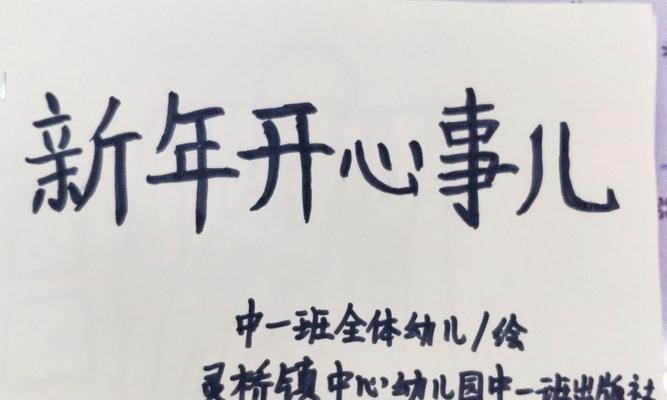 新年开心事儿
中一班全体幼儿/绘
灵桥镇中心幼儿园中一班出版社